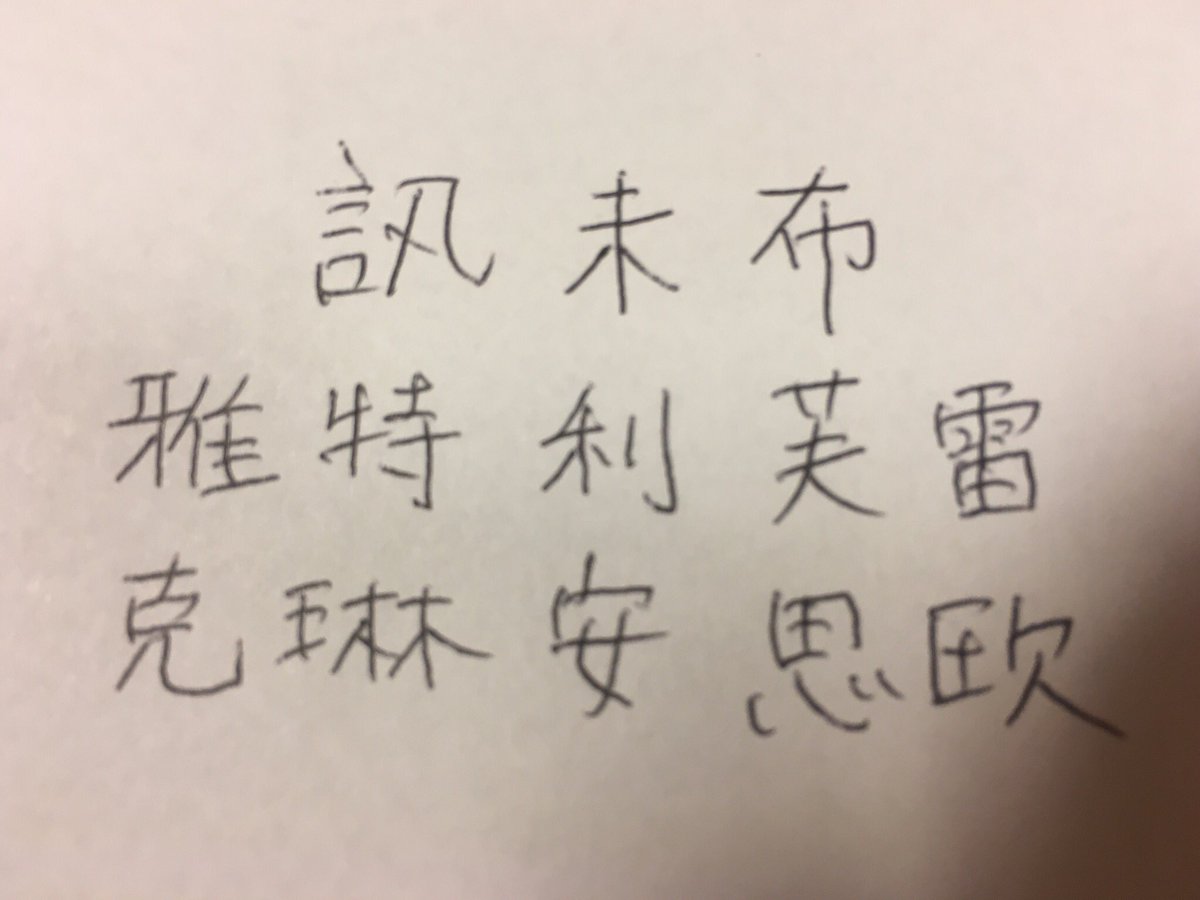 訊未布
雅特利芙雷
克琳安思欧